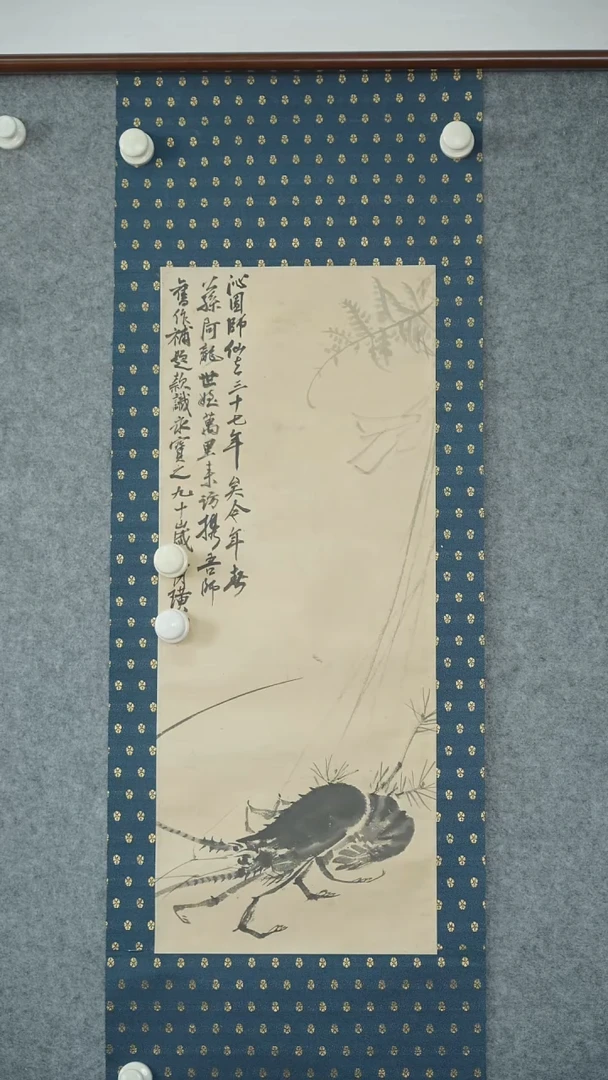 沁園師仙去三十七年矣今年春
公孫阿龍世姪萬里來訪攜吾師
舊作補題款識永寶之九十歲璜